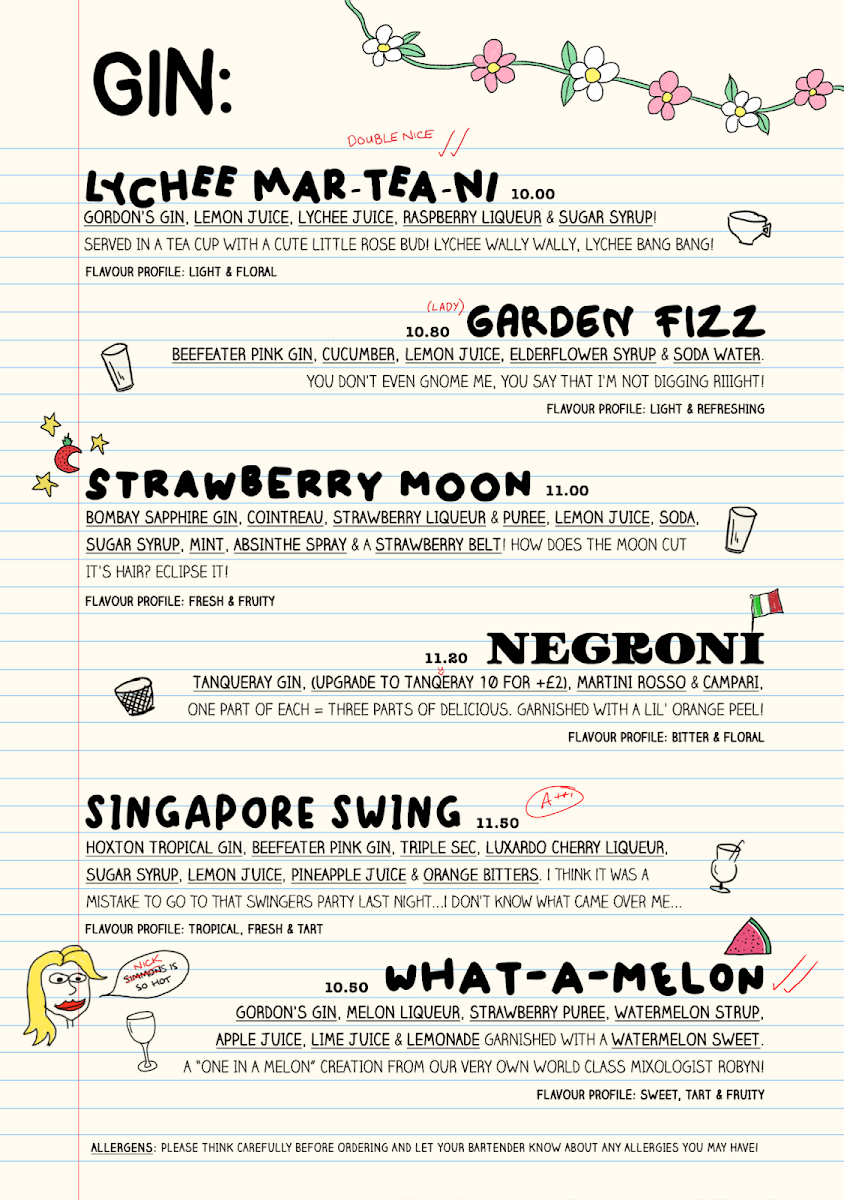 GIN:
DOUBLE NICE
LYCHEE MAR-TEA-NI 10.00
GORDON'S GIN, LEMON JUICE, LYCHEE JUICE, RASPBERRY LIQUEUR & SUGAR SYRUP!
SERVED IN A TEA CUP WITH A CUTE LITTLE ROSE BUD! LYCHEE WALLY WALLY, LYCHEE BANG BANG!
FLAVOUR PROFILE: LIGHT & FLORAL
(LADY)
10.80 GARDEN FIZZ
BEEFEATER PINK GIN, CUCUMBER, LEMON JUICE, ELDERFLOWER SYRUP & SODA WATER.
YOU DON'T EVEN GNOME ME, YOU SAY THAT I'M NOT DIGGING RIIIGHT!
FLAVOUR PROFILE: LIGHT & REFRESHING
STRAWBERRY MOON 11.00
BOMBAY SAPPHIRE GIN, COINTREAU, STRAWBERRY LIQUEUR & PUREE, LEMON JUICE, SODA,
SUGAR SYRUP, MINT, ABSINTHE SPRAY & A STRAWBERRY BELT! HOW DOES THE MOON CUT
IT'S HAIR? ECLIPSE IT!
FLAVOUR PROFILE: FRESH & FRUITY
11.20 NEGRONI
TANQUERAY GIN, (UPGRADE TO TANQERAY 10 FOR +£2), MARTINI ROSSO & CAMPARI,
ONE PART OF EACH = THREE PARTS OF DELICIOUS. GARNISHED WITH A LIL' ORANGE PEEL!
FLAVOUR PROFILE: BITTER & FLORAL
SINGAPORE SWING 11.50
A+++
HOXTON TROPICAL GIN, BEEFEATER PINK GIN, TRIPLE SEC, LUXARDO CHERRY LIQUEUR,
SUGAR SYRUP, LEMON JUICE, PINEAPPLE JUICE & ORANGE BITTERS. I THINK IT WAS A
MISTAKE TO GO TO THAT SWINGERS PARTY LAST NIGHT...I DON'T KNOW WHAT CAME OVER ME...
FLAVOUR PROFILE: TROPICAL, FRESH & TART
NICK
SIMMONS IS
SO HOT
10.50 WHAT-A-MELON
GORDON'S GIN, MELON LIQUEUR, STRAWBERRY PUREE, WATERMELON STRUP,
APPLE JUICE, LIME JUICE & LEMONADE GARNISHED WITH A WATERMELON SWEET.
A "ONE IN A MELON" CREATION FROM OUR VERY OWN WORLD CLASS MIXOLOGIST ROBYN!
FLAVOUR PROFILE: SWEET, TART & FRUITY
ALLERGENS: PLEASE THINK CAREFULLY BEFORE ORDERING AND LET YOUR BARTENDER KNOW ABOUT ANY ALLERGIES YOU MAY HAVE!